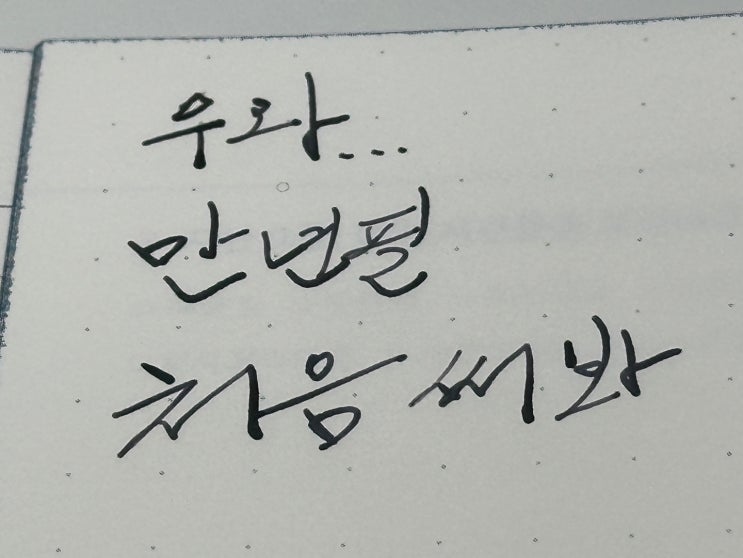 우와...
만년필
처음 써봐